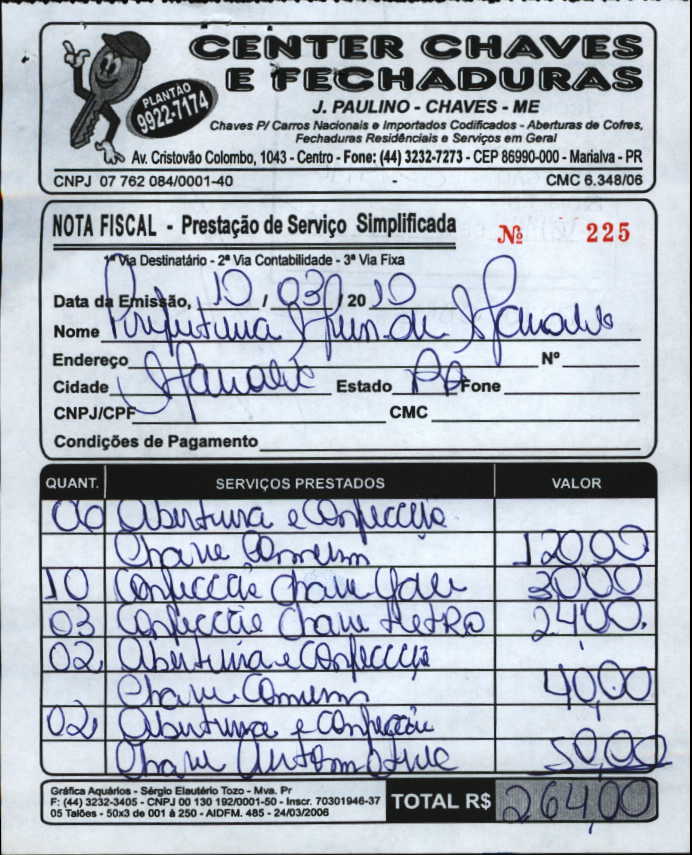 CENTER CHAVES
E FECHADURAS
PLANTÃO
9922-7174
J. PAULINO - CHAVES - ME
Chaves P/ Carros Nacionais e Importados Codificados - Aberturas de Cofres,
Fechaduras Residênciais e Serviços em Geral
Av. Cristovão Colombo, 1043 - Centro - Fone: (44) 3232-7273 - CEP 86990-000 - Marialva - PR
CNPJ 07 762 084/0001-40 - CMC 6.348/06
NOTA FISCAL - Prestação de Serviço Simplificada Nº 225
1ª Via Destinatário - 2ª Via Contabilidade - 3ª Via Fixa
Data da Emissão, 10 / 03 / 20 10
Nome Prefeitura Mun. de Marialva
Endereço Nº
Cidade Marialva Estado PR Fone
CNPJ/CPF CMC
Condições de Pagamento
QUANT. SERVIÇOS PRESTADOS VALOR
06 Abertura e Confecção
Chave Comum 120,00
10 Confecção Chave Yale 30,00
03 Confecção Chave Tetra 24,00
02 Abertura e Confecção
Chave Comum 40,00
02 Abertura e Confecção
Chave Automotive 50,00
Gráfica Aquários - Sérgio Elautério Tozo - Mva. Pr
F: (44) 3232-3405 - CNPJ 00 130 192/0001-50 - Inscr. 70301946-37
05 Talões - 50x3 de 001 à 250 - AIDFM. 485 - 24/03/2006
TOTAL R$ 264,00